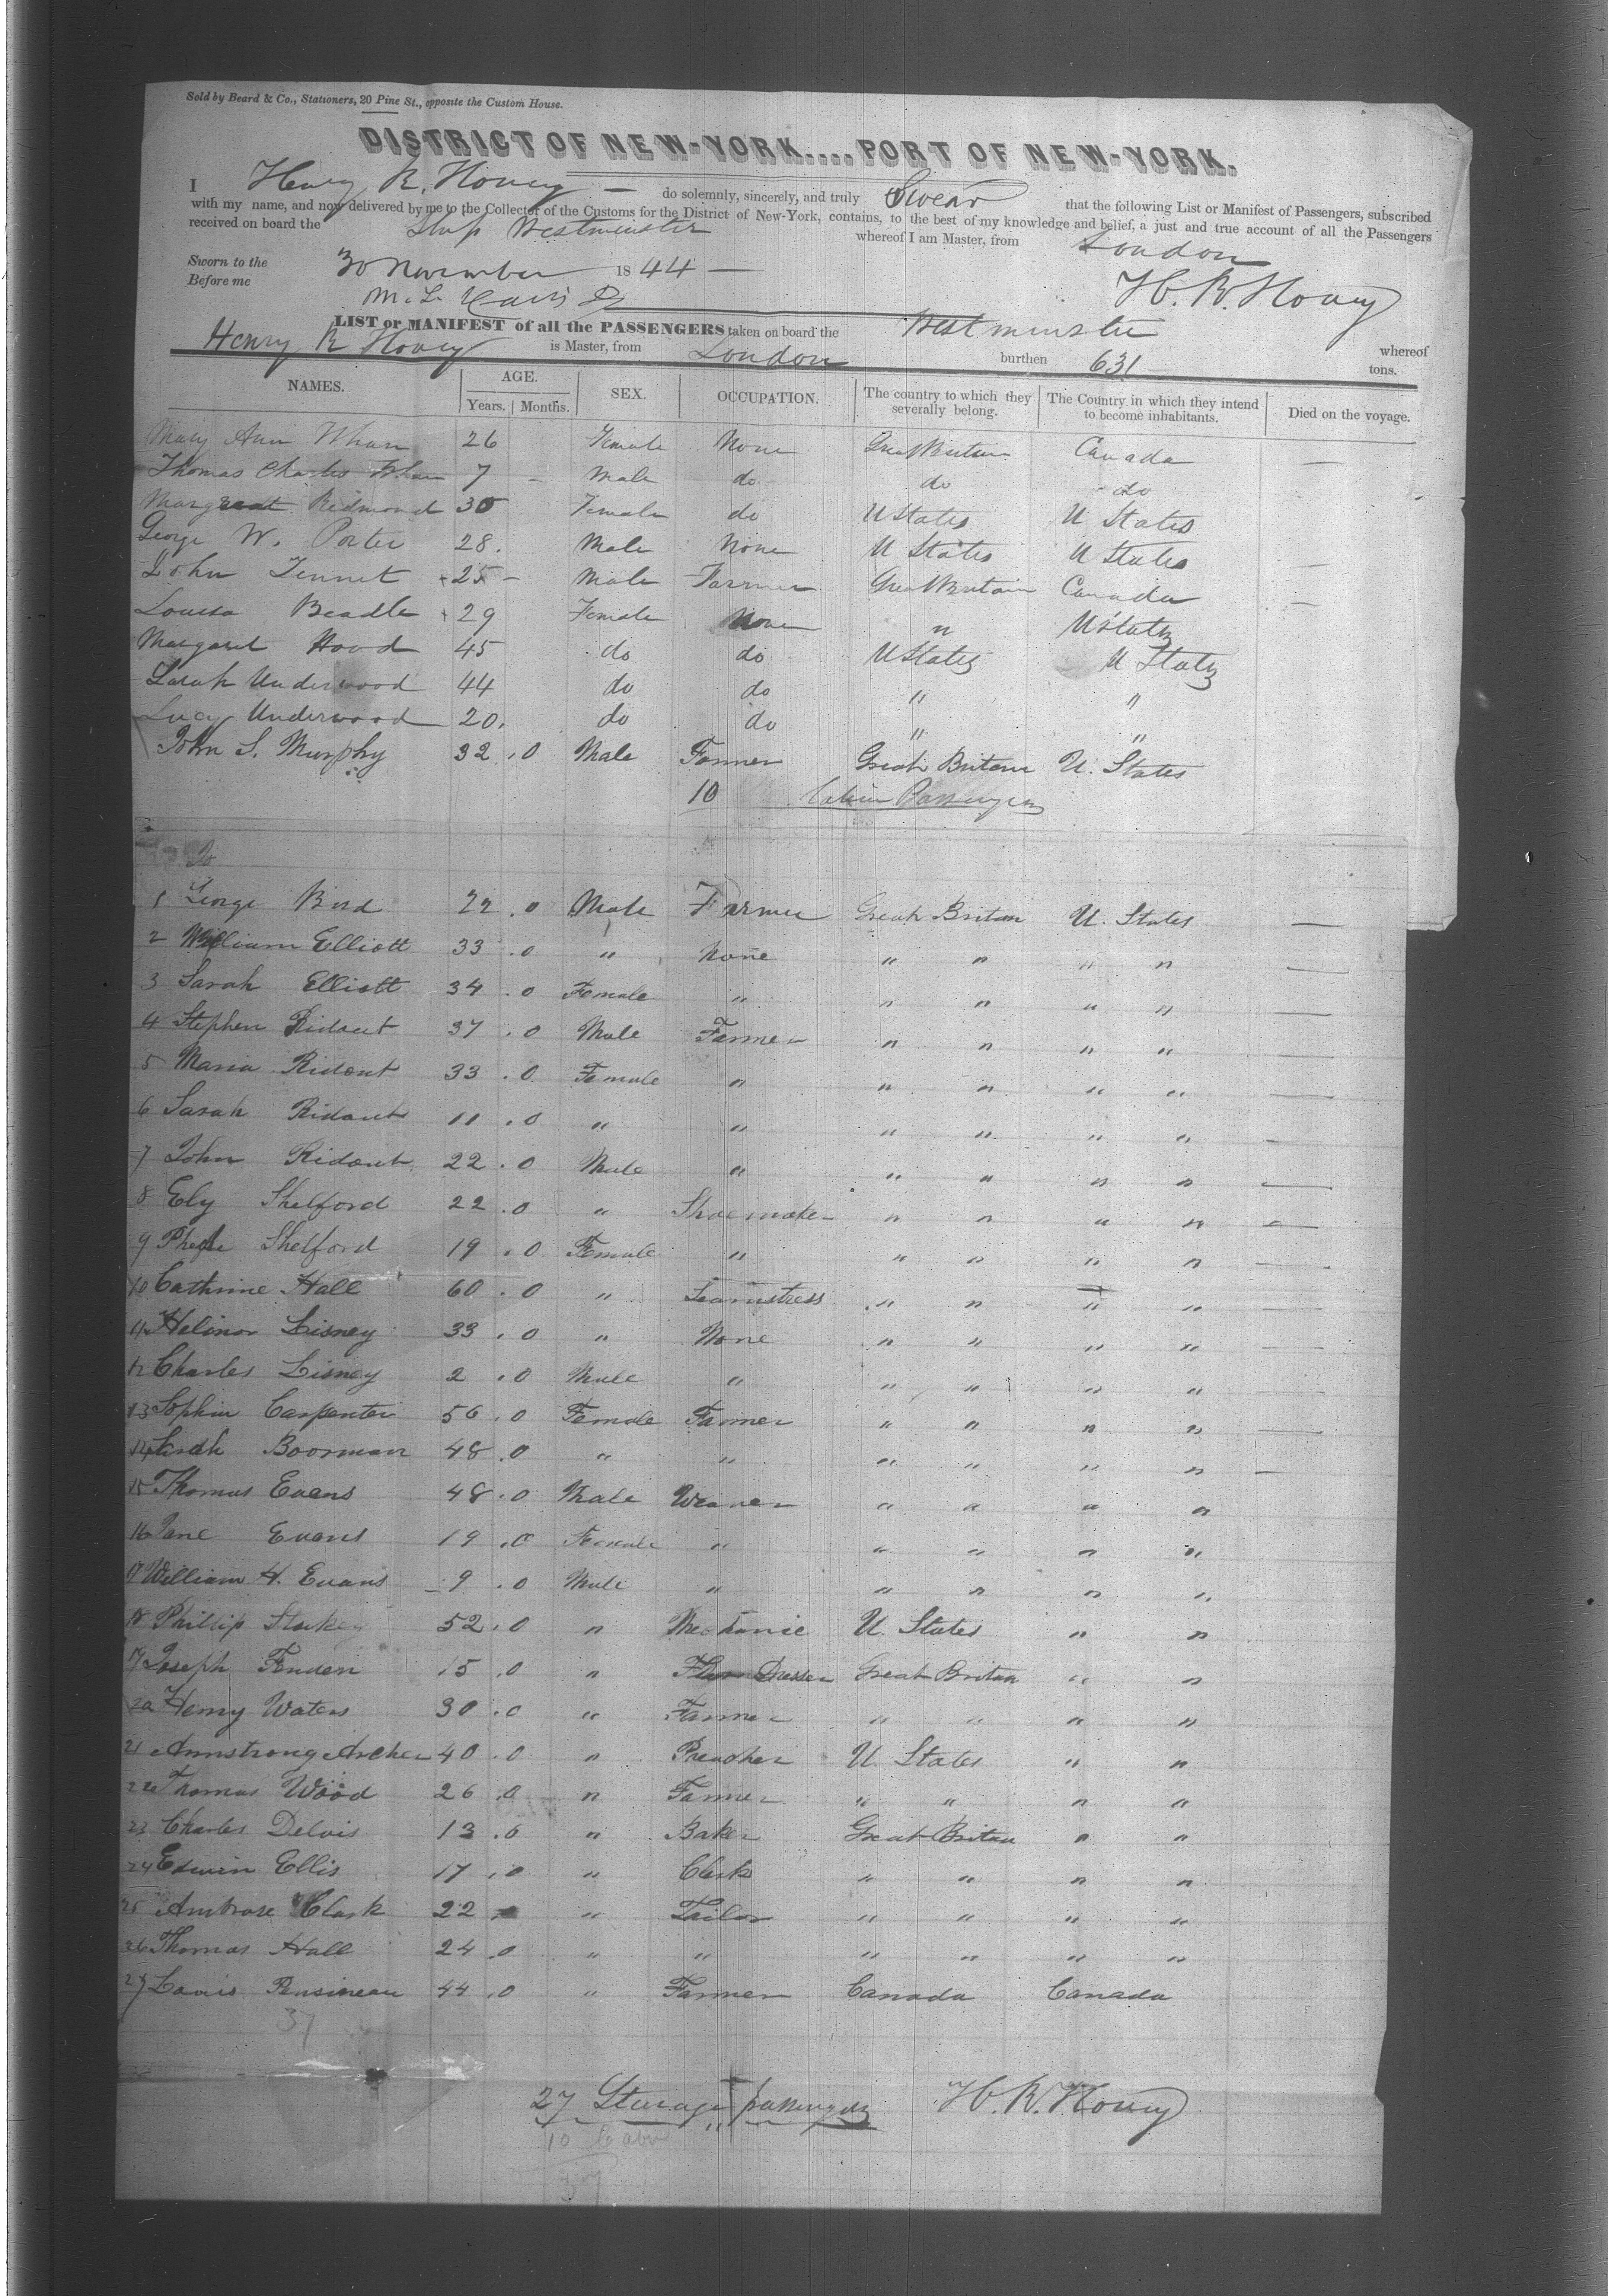 Sold by Beard & Co., Stationers, 20 Pine St., opposite the Custom House.
DISTRICT OF NEW-YORK....PORT OF NEW-YORK.
I Henry R. Hovey — do solemnly, sincerely, and truly Swear that the following List or Manifest of Passengers, subscribed
with my name, and now delivered by me to the Collector of the Customs for the District of New-York, contains, to the best of my knowledge and belief, a just and true account of all the Passengers
received on board the Ship Westminster whereof I am Master, from London
Sworn to the 30 November 1844 —
Before me H. R. Hovey
LIST or MANIFEST of all the PASSENGERS taken on board the Westminster whereof
Henry R Hovey is Master, from London burthen 631 tons.
NAMES. AGE. Years. Months. SEX. OCCUPATION. The country to which they severally belong. The Country in which they intend to become inhabitants. Died on the voyage.
Mary Ann 26 Female None Great Britain Canada —
Thomas Charles 7 - Male do do do
Margreat Redmond 30 Female do U States U States
George W. Porter 28. Male None U States U States —
John Tennet 25 - Male Farmer Great Britain Canada —
Louisa Beadle 29 Female None " U States
Margaret Hood 45 do do U States U States
Sarah Underwood 44 do do " "
Lucy Underwood 20. do do " "
John S. Murphy 32 . 0 Male Farmer Great Britain U. States
10 Cabin Passengers
1 George Bird 22 . 0 Male Farmer Great Britain U. States —
2 William Elliott 33 . 0 " None " " " " —
3 Sarah Elliott 34 . 0 Female " " " " " —
4 Stephen Ridout 37 . 0 Male Farmer " " " " —
5 Maria Ridout 33 . 0 Female " " " " " —
6 Sarah Ridout 11 . 0 " " " " " " —
7 John Ridout 22 . 0 Male " " " " " —
8 Ely Shelford 22 . 0 " Shoemaker " " " " —
9 Shelford 19 . 0 Female " " " " " —
10 Cathrine Hall 60 . 0 " Seamstress " " " " —
11 Helinor Lisney 33 . 0 " None " " " " —
12 Charles Lisney 2 . 0 Male " " " " " —
13 Sophia Carpenter 56 . 0 Female Farmer " " " " —
14 Sarah Boorman 48 . 0 " " " " " " —
15 Thomas Evans 48 . 0 Male Weaver " " " "
16 Jane Evans 19 . 0 Female " " " " "
17 William H. Evans 9 . 0 Male " " " " "
18 Phillip Stukey 52 . 0 " Mechanic U. States " "
19 Joseph 15 . 0 " Dresser Great Britain " "
20 Henry Waters 30 . 0 " Farmer " " " "
21 Armstrong Archer 40 . 0 " Preacher U. States " "
22 Thomas Wood 26 . 0 " Farmer " " " "
23 Charles 13 . 0 " Baker Great Britain " "
24 Edwin Ellis 17 . 0 " Clerk " " " "
25 Ambrose Clark 22 " Tailor " " " "
26 Thomas Hall 24 . 0 " " " " " "
27 Louis 44 . 0 " Farmer Canada Canada
37
27 Sterage passengers H. R. Hovey
10 Cabin
37